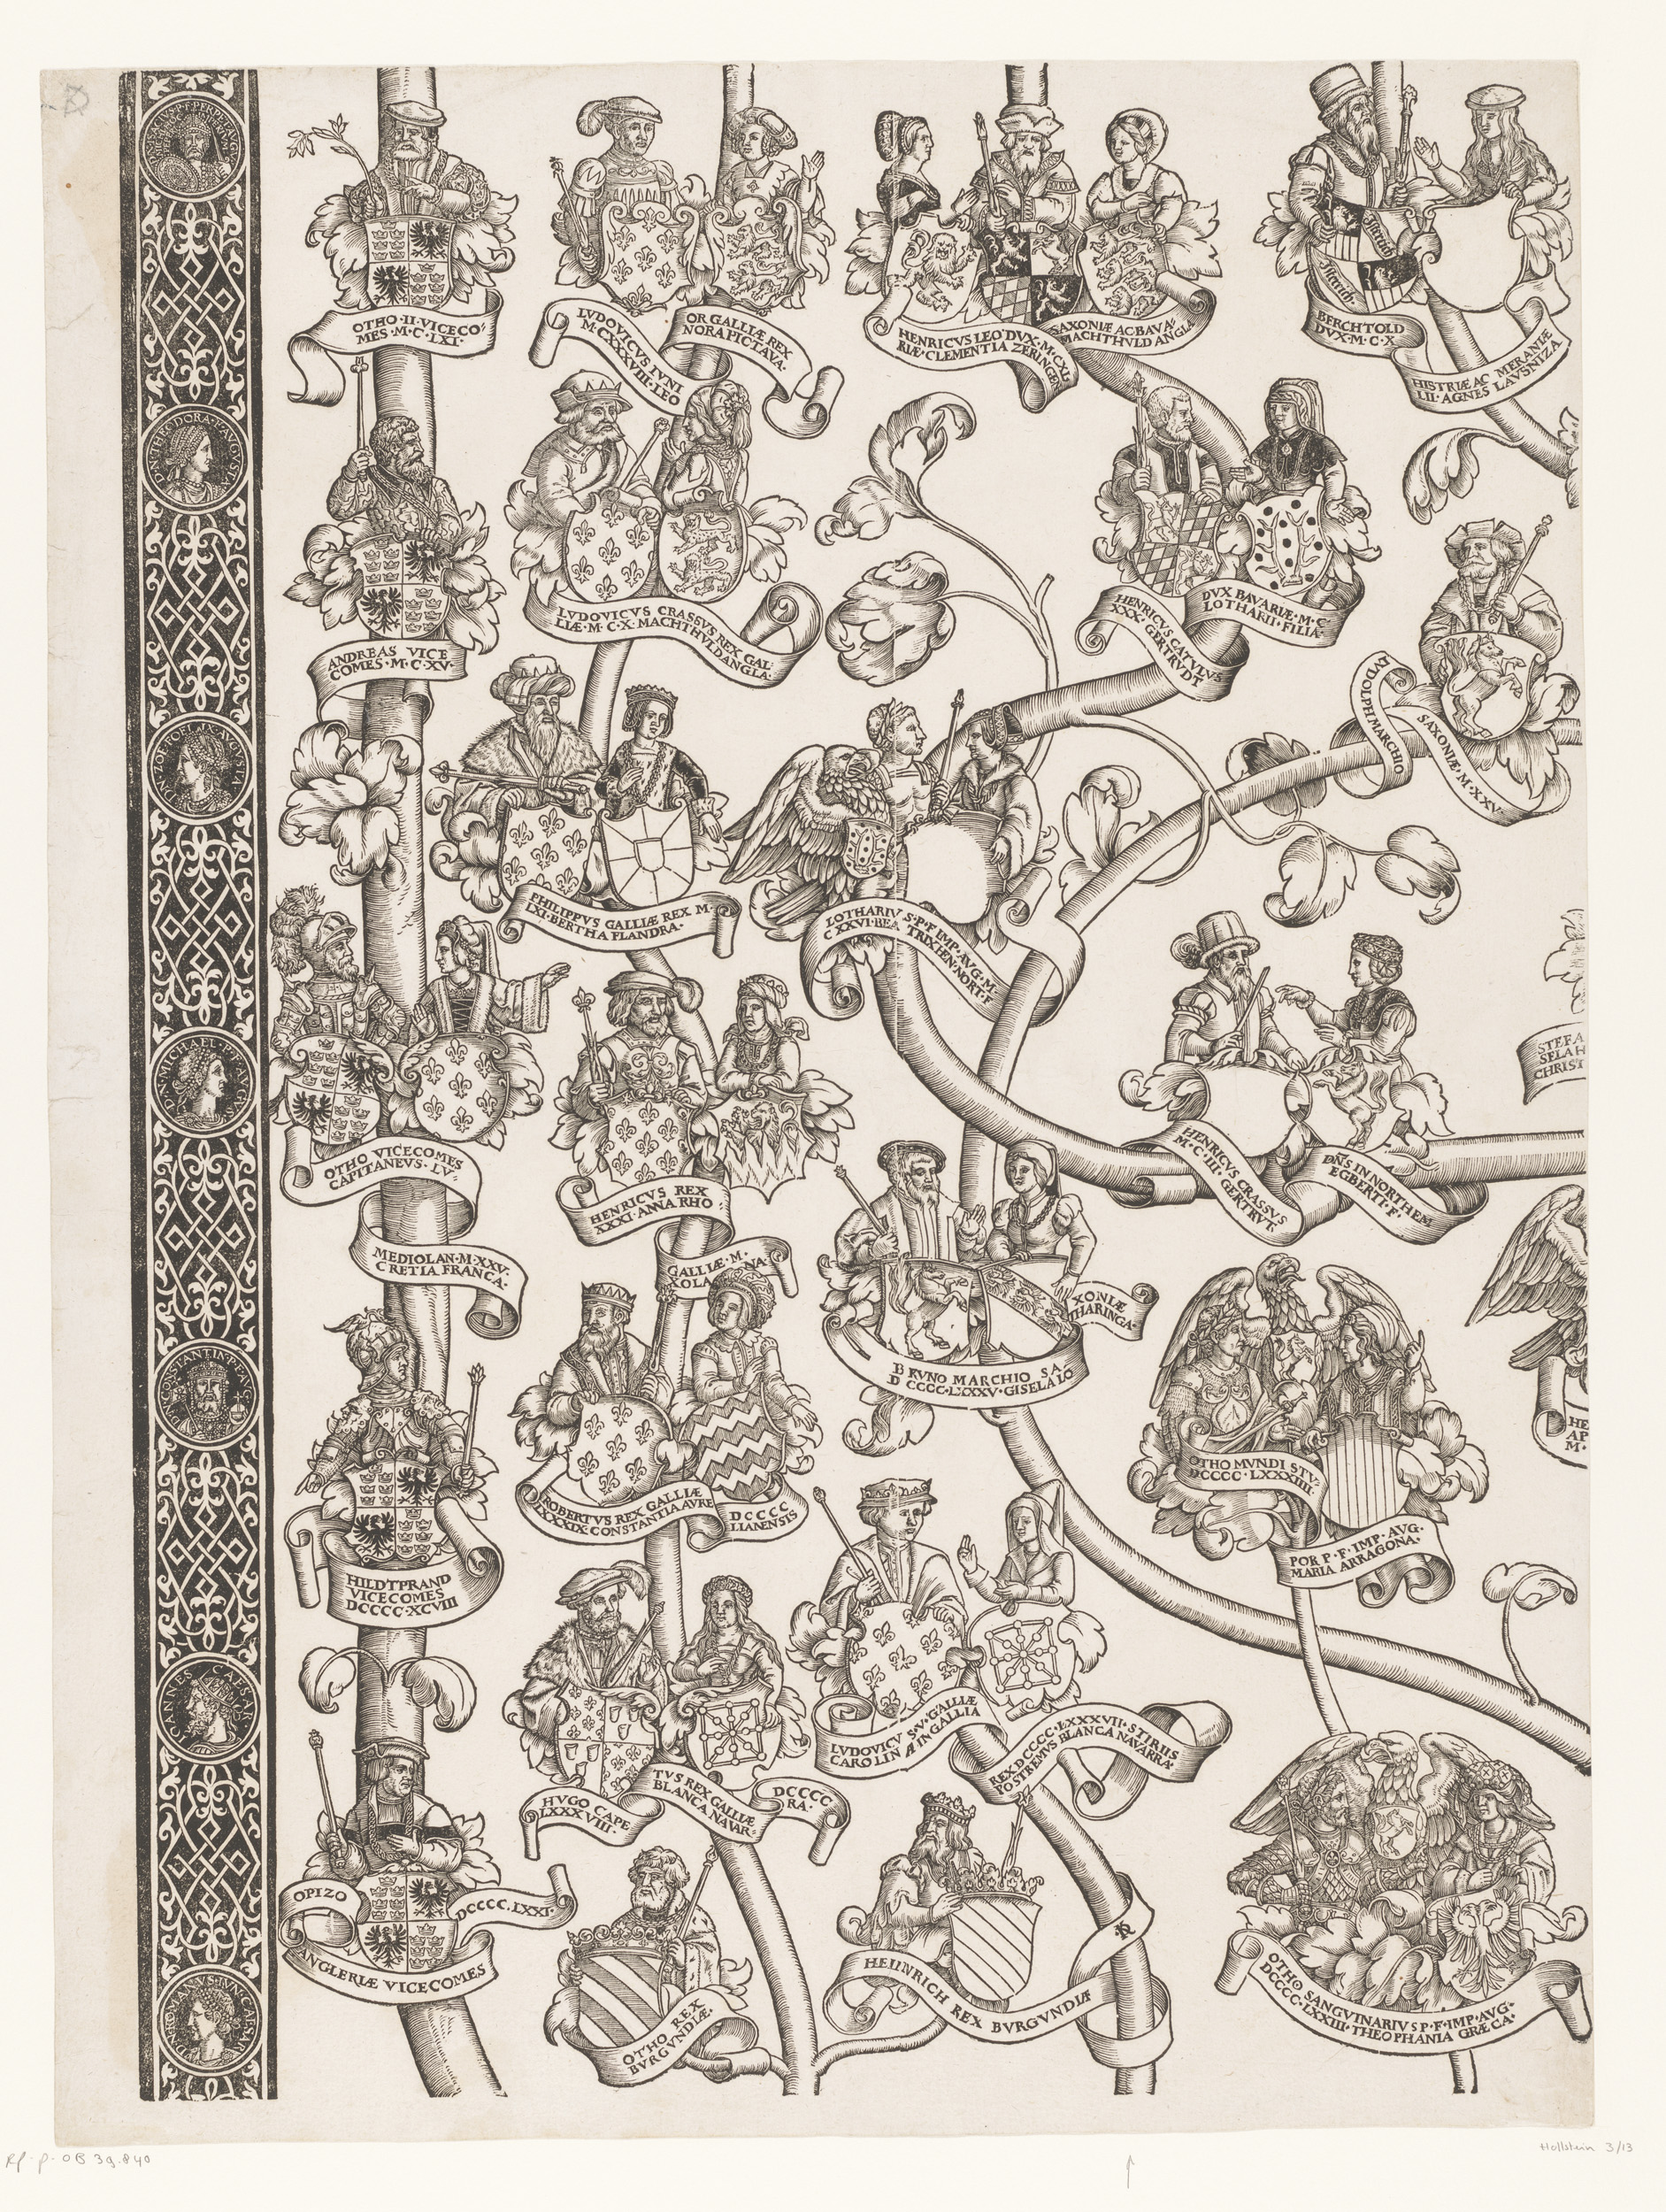 OTHO·II·VICECO-
MES·M·C·LXI·
LVDOVICVS IVNI
M·CXXXVIII·LEO
OR GALLIÆ REX
NORA PICTAVA·
HENRICVS LEO DVX·M·CXL
RIÆ·CLEMENTIA ZERINGE
SAXONIÆ AC BAVA-
MACHTHVLD ANGLA
BERCHTOLD
DVX·M·C·X
HISTRIÆ AC MERANIÆ
LII·AGNES LAVSNIZA
Isterreich
Isterreich
ANDREAS VICE
COMES·M·C·XV·
LVDOVICVS CRASSVS REX GAL
LIÆ·M·C·X·MACHTHVLD ANGLA·
HENRICVS CATVLVS
XXX·GERTRVDT
DVX BAVARIÆ·M·C·
LOTHARII·FILIA·
LVDOLPH MARCHIO
SAXONIÆ·M·XXV·
PHILIPPVS GALLIÆ REX M·
LXI·BERTHA FLANDRA·
LOTHARIV S·P·F IMP·AVG·M·
CXXVI·BEA TRIX HEN·NORT·F·
OTHO VICECOMES
CAPITANEVS·LV
MEDIOLAN·M·XXV·
CRETIA FRANCA·
HENRICVS REX
XXXI·ANNA RHO
GALLIÆ·M·
XOLA NA·
HENRICVS CRASSVS
M·C·III·GERTRVT·
DNS IN NORTHEM
EGBERTI·F·
STEFA
SELAH
CHRIST
BRVNO MARCHIO SA-
DCCCC·LXXXV·GISELA LO
XONIÆ
THARINGA·
ROBERTVS REX GALLIÆ
LXXXIX·CONSTANTIA AVRE
DCCCC
LIANENSIS
OTHO MVNDI STV·
DCCCC·LXXXIIII·
POR P·F·IMP·AVG·
MARIA ARRAGONA·
HE
AP
M·
HILDTPRAND
VICECOMES
DCCCC·XCVIII
HVGO CAPE
LXXXVIII·
TVS REX GALLIÆ
BLANCA NAVAR·
DCCCC
RA·
LVDOVICV S·V·GALLIÆ
CAROLIN Æ IN GALLIA
REX DCCCC·LXXXVII·STIRIIS
POSTREMVS BLANCA NAVARRA·
OPIZO
DCCCC·LXXI·
ANGLERIÆ VICECOMES
OTHO REX
BVRGVNDIÆ·
HEIINRICH REX BVRGVNDIÆ
OTHO SANGVINARIVS P·F·IMP·AVG·
DCCCC·LXXIII·THEOPHANIA GRÆCA·
RP-P-OB 39.840
Hollstein 3/13